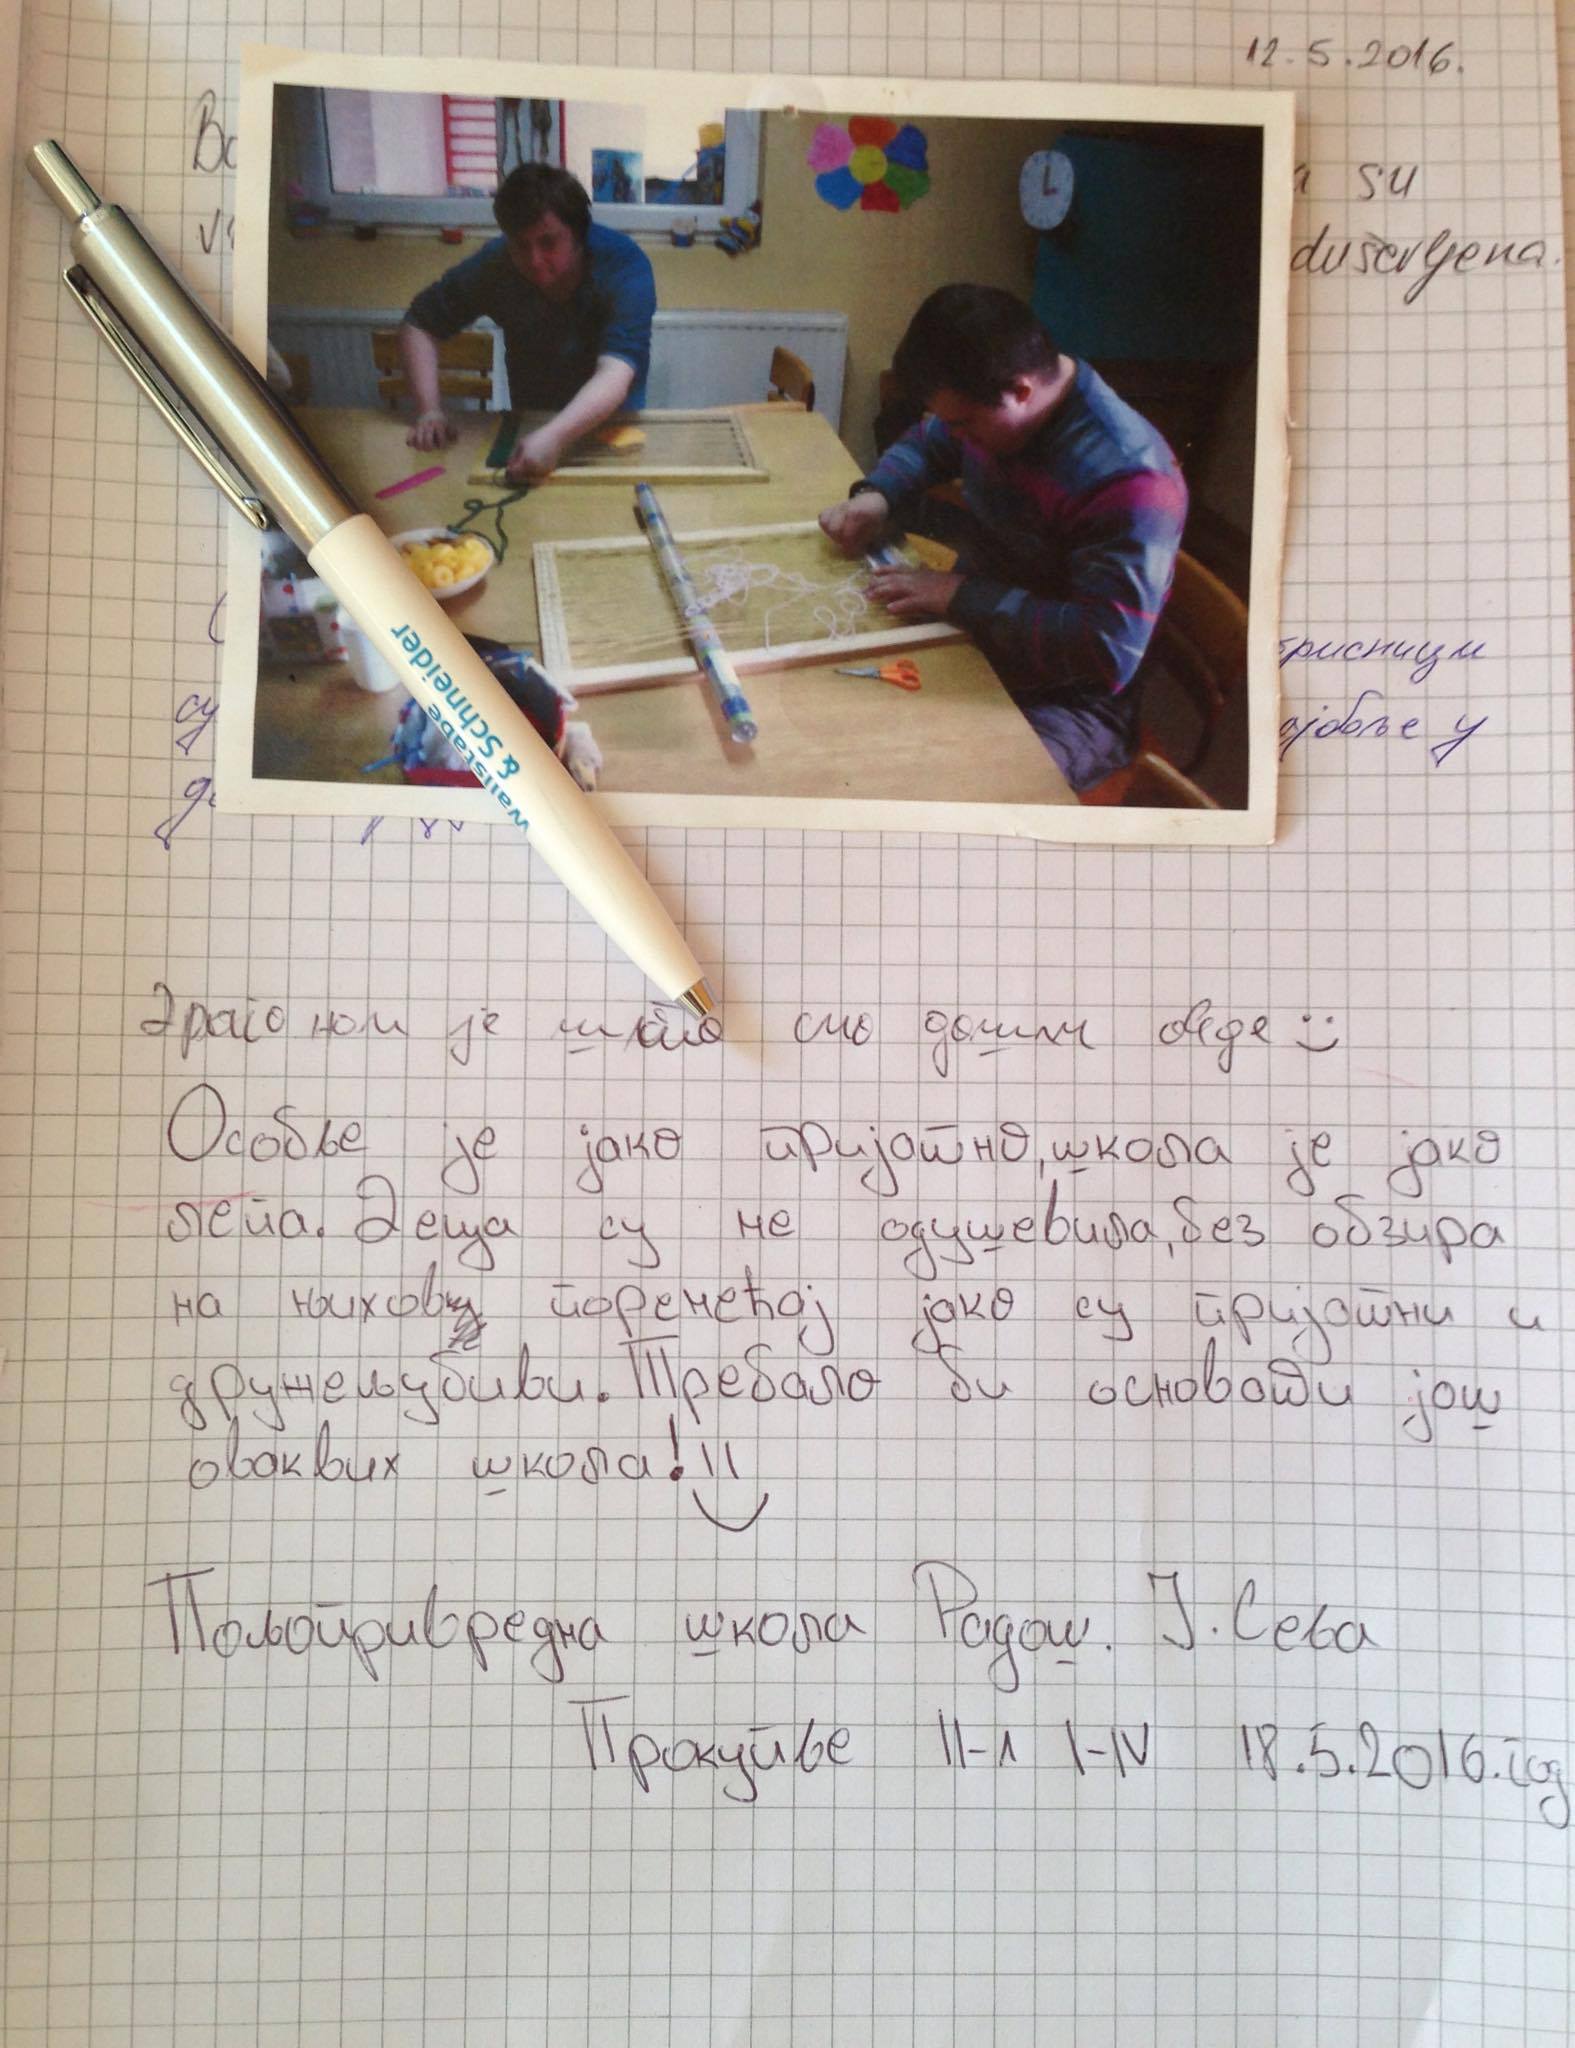 12.5.2016.
su
duševljena.
ајбоље у
Wallstabe
& Schneider
Драго нам је што смо дошли овде :)
Особље је јако пријатно, школа је јако
лепа. Деца су не одушевила, без обзира
на њихов поремећај јако су пријатни и
дружељубиви. Требало би основати још
оваквих школа!
Пољопривредна школа Радош. Ј. Сева
Прокупље II-1 I-IV 18.5.2016.год